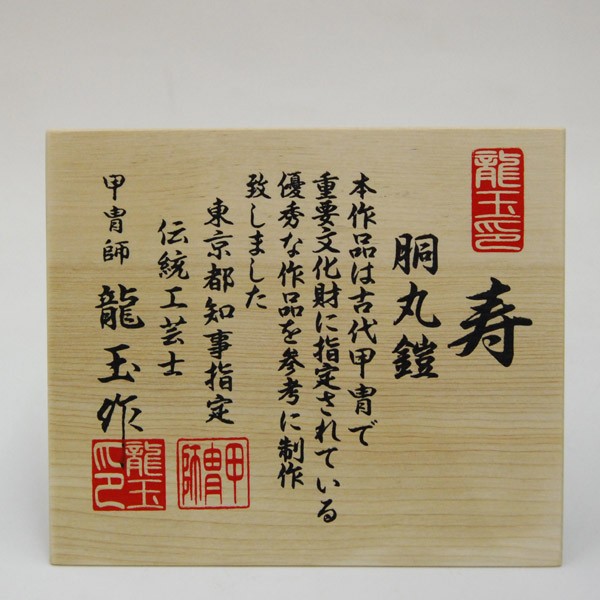 龍玉印
寿
胴丸鎧
本作品は古代甲冑で
重要文化財に指定されている
優秀な作品を参考に制作
致しました
東京都知事指定
伝統工芸士
甲冑師 龍玉作
甲冑師
龍玉印